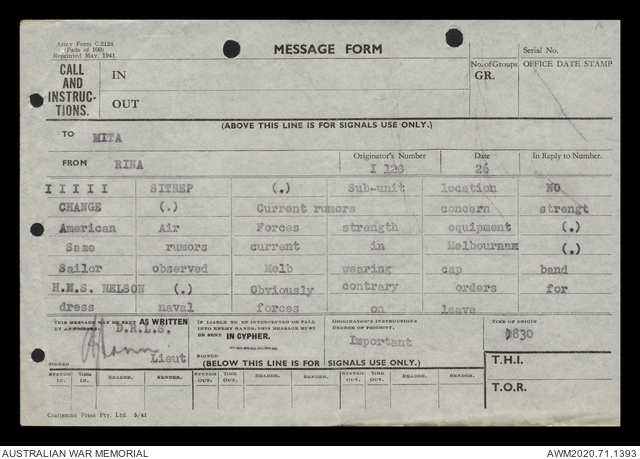 Army Form C.2128
(Pads of 100)
Reprinted May, 1941
MESSAGE FORM
Serial No.
CALL AND INSTRUC- TIONS.
IN
OUT
No. of Groups GR.
OFFICE DATE STAMP
(ABOVE THIS LINE IS FOR SIGNALS USE ONLY.)
TO MITA
FROM RINA
Originator's Number I 126
Date 26
In Reply to Number.
I I I I I SITREP (.) Sub-unit location NO
CHANGE (.) Current rumors concern strengt
American Air Forces strength equipment (.)
Same rumors current in Melbournax (.)
Sailor observed Melb wearing cap band
H.M.S. NELSON (.) Obviously contrary orders for
dress naval forces on leave
THIS MESSAGE MAY BE SENT AS WRITTEN BY ANY MEANS. D.R.L.S.
SIGNED Lieut
IF LIABLE TO BE INTERCEPTED OR FALL INTO ENEMY HANDS, THIS MESSAGE MUST BE SENT IN CYPHER.
SIGNED
ORIGINATOR'S INSTRUCTIONS DEGREE OF PRIORITY.
Important
TIME OF ORIGIN
0830
T.H.I.
T.O.R.
(BELOW THIS LINE IS FOR SIGNALS USE ONLY.)
SYSTEM IN. TIME IN. READER. SENDER. SYSTEM OUT. TIME OUT. READER. SENDER. SYSTEM OUT. TIME OUT. READER. SENDER.
Craftsman Press Pty. Ltd. 5/41
AUSTRALIAN WAR MEMORIAL
AWM2020.71.1393